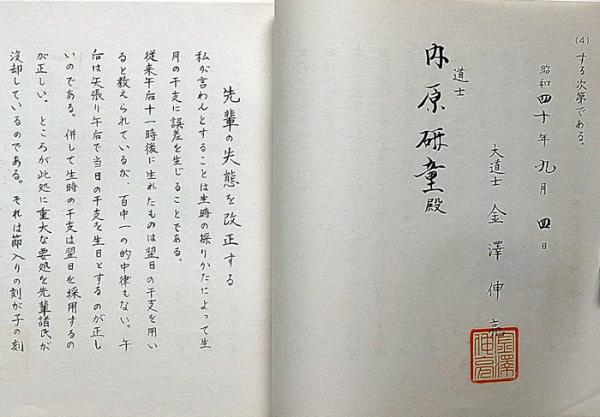 (4) する次第である。
昭和四十年九月四日
大道士 金澤伸亮
道士
内原研童殿
先輩の失態を改正する
私が言わんとすることは生時の操りかたによって生
月の干支に誤差を生じることである。
従来午后十一時後に生れたものは翌日の干支を用い
ると教えられているが、百中一の的中律もない。午
后は矢張り午后で当日の干支を生日とするのが正し
いのである。併して生時の干支は翌日を採用するの
が正しい。ところが此処に重大な要処を先輩諸氏が
没却しているのである。それは節入りの刻が子の刻